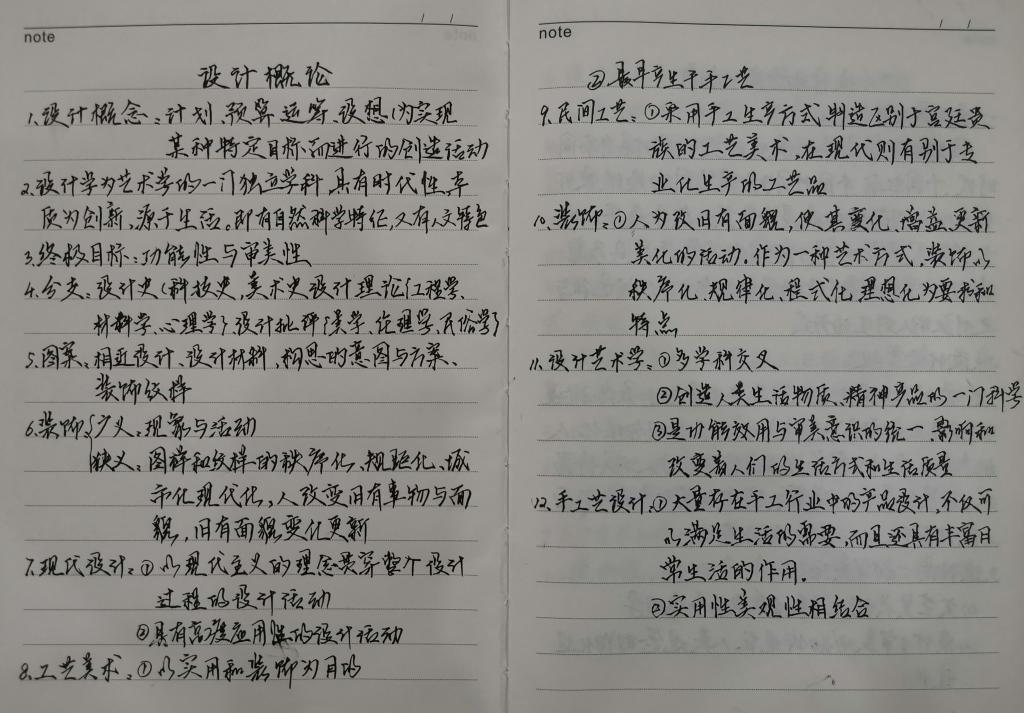 note
设计概论
1.设计概念:计划、预算、运筹、设想(为实现
某种特定目标而进行的创造活动
2.设计学为艺术学的一门独立学科,具有时代性,本
质为创新,源于生活,即有自然科学特征,又有人文特色
3.终极目标:功能性与审美性
4.分支:设计史(科技史,美术史设计理论(工程学、
材料学、心理学)设计批评(美学、伦理学、民俗学)
5.图案:相近设计、设计材料,构思的意图与方案、
装饰纹样
6.装饰{广义:现象与活动
狭义:图样和纹样的秩序化、规矩化、城
市化现代化,人改变旧有事物与面
貌,旧有面貌变化更新
7.现代设计:①以现代主义的理念贯穿整个设计
过程的设计活动
②具有高难应用性的设计活动
8.工艺美术:①以实用和装饰为目的
note
②最早产生于手工艺
9.民间工艺:①采用手工生产方式制造区别于宫廷贵
族的工艺美术,在现代则有别于专
业化生产的工艺品
10.装饰:①人为改旧有面貌,使其变化、增益、更新
美化的活动.作为一种艺术方式,装饰以
秩序化、规律化、程式化、理想化为要求和
特点
11.设计艺术学:①多学科交叉
②创造人类生活物质、精神产品的一门科学
③是功能效用与审美意识的统一,影响和
改变着人们的生活方式和生活质量
12.手工艺设计:①大量存在手工行业中的产品设计,不仅可
以满足生活的需要,而且还具有丰富日
常生活的作用.
②实用性美观性相结合